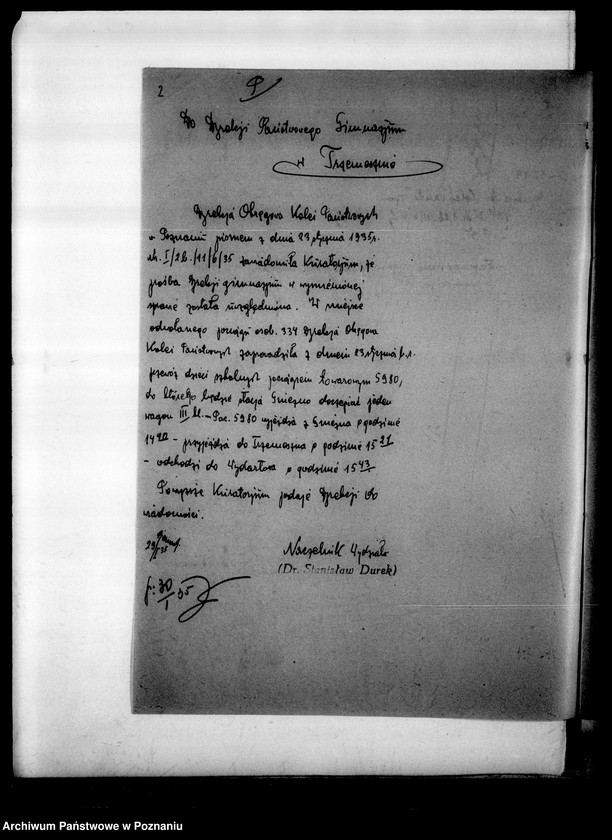 2
Do Dyrekcji Państwowego Gimnazjum
w Trzemesznie
Dyrekcja Okręgowa Kolei Państwowych
w Poznaniu pismem z dnia 23 stycznia 1935 r.
nr. I/2b./11/6/35 zawiadomiła Kuratorjum, że
prośba Dyrekcji gimnazjum w wymienionej
sprawie została uwzględniona. W miejsce
odwołanego pociągu osob. 334 Dyrekcja Okręgowa
Kolei Państwowych zaprowadziła z dniem 23 stycznia b.r.
przewóz dzieci szkolnych pociągiem towarowym 5980,
do którego będzie stacja Gniezno doczepiać jeden
wagon III kl. – Poc. 5980 wyjeżdża z Gniezna o godzinie
– przyjeżdża do Trzemeszna o godzinie 15 21
– odchodzi do Wydartowa o godzinie 15 43
Powyższe Kuratorjum podaje Dyrekcji do
wiadomości.
29/I 35
Naczelnik Wydziału
(Dr. Stanisław Durek)
30/I 35
Archiwum Państwowe w Poznaniu